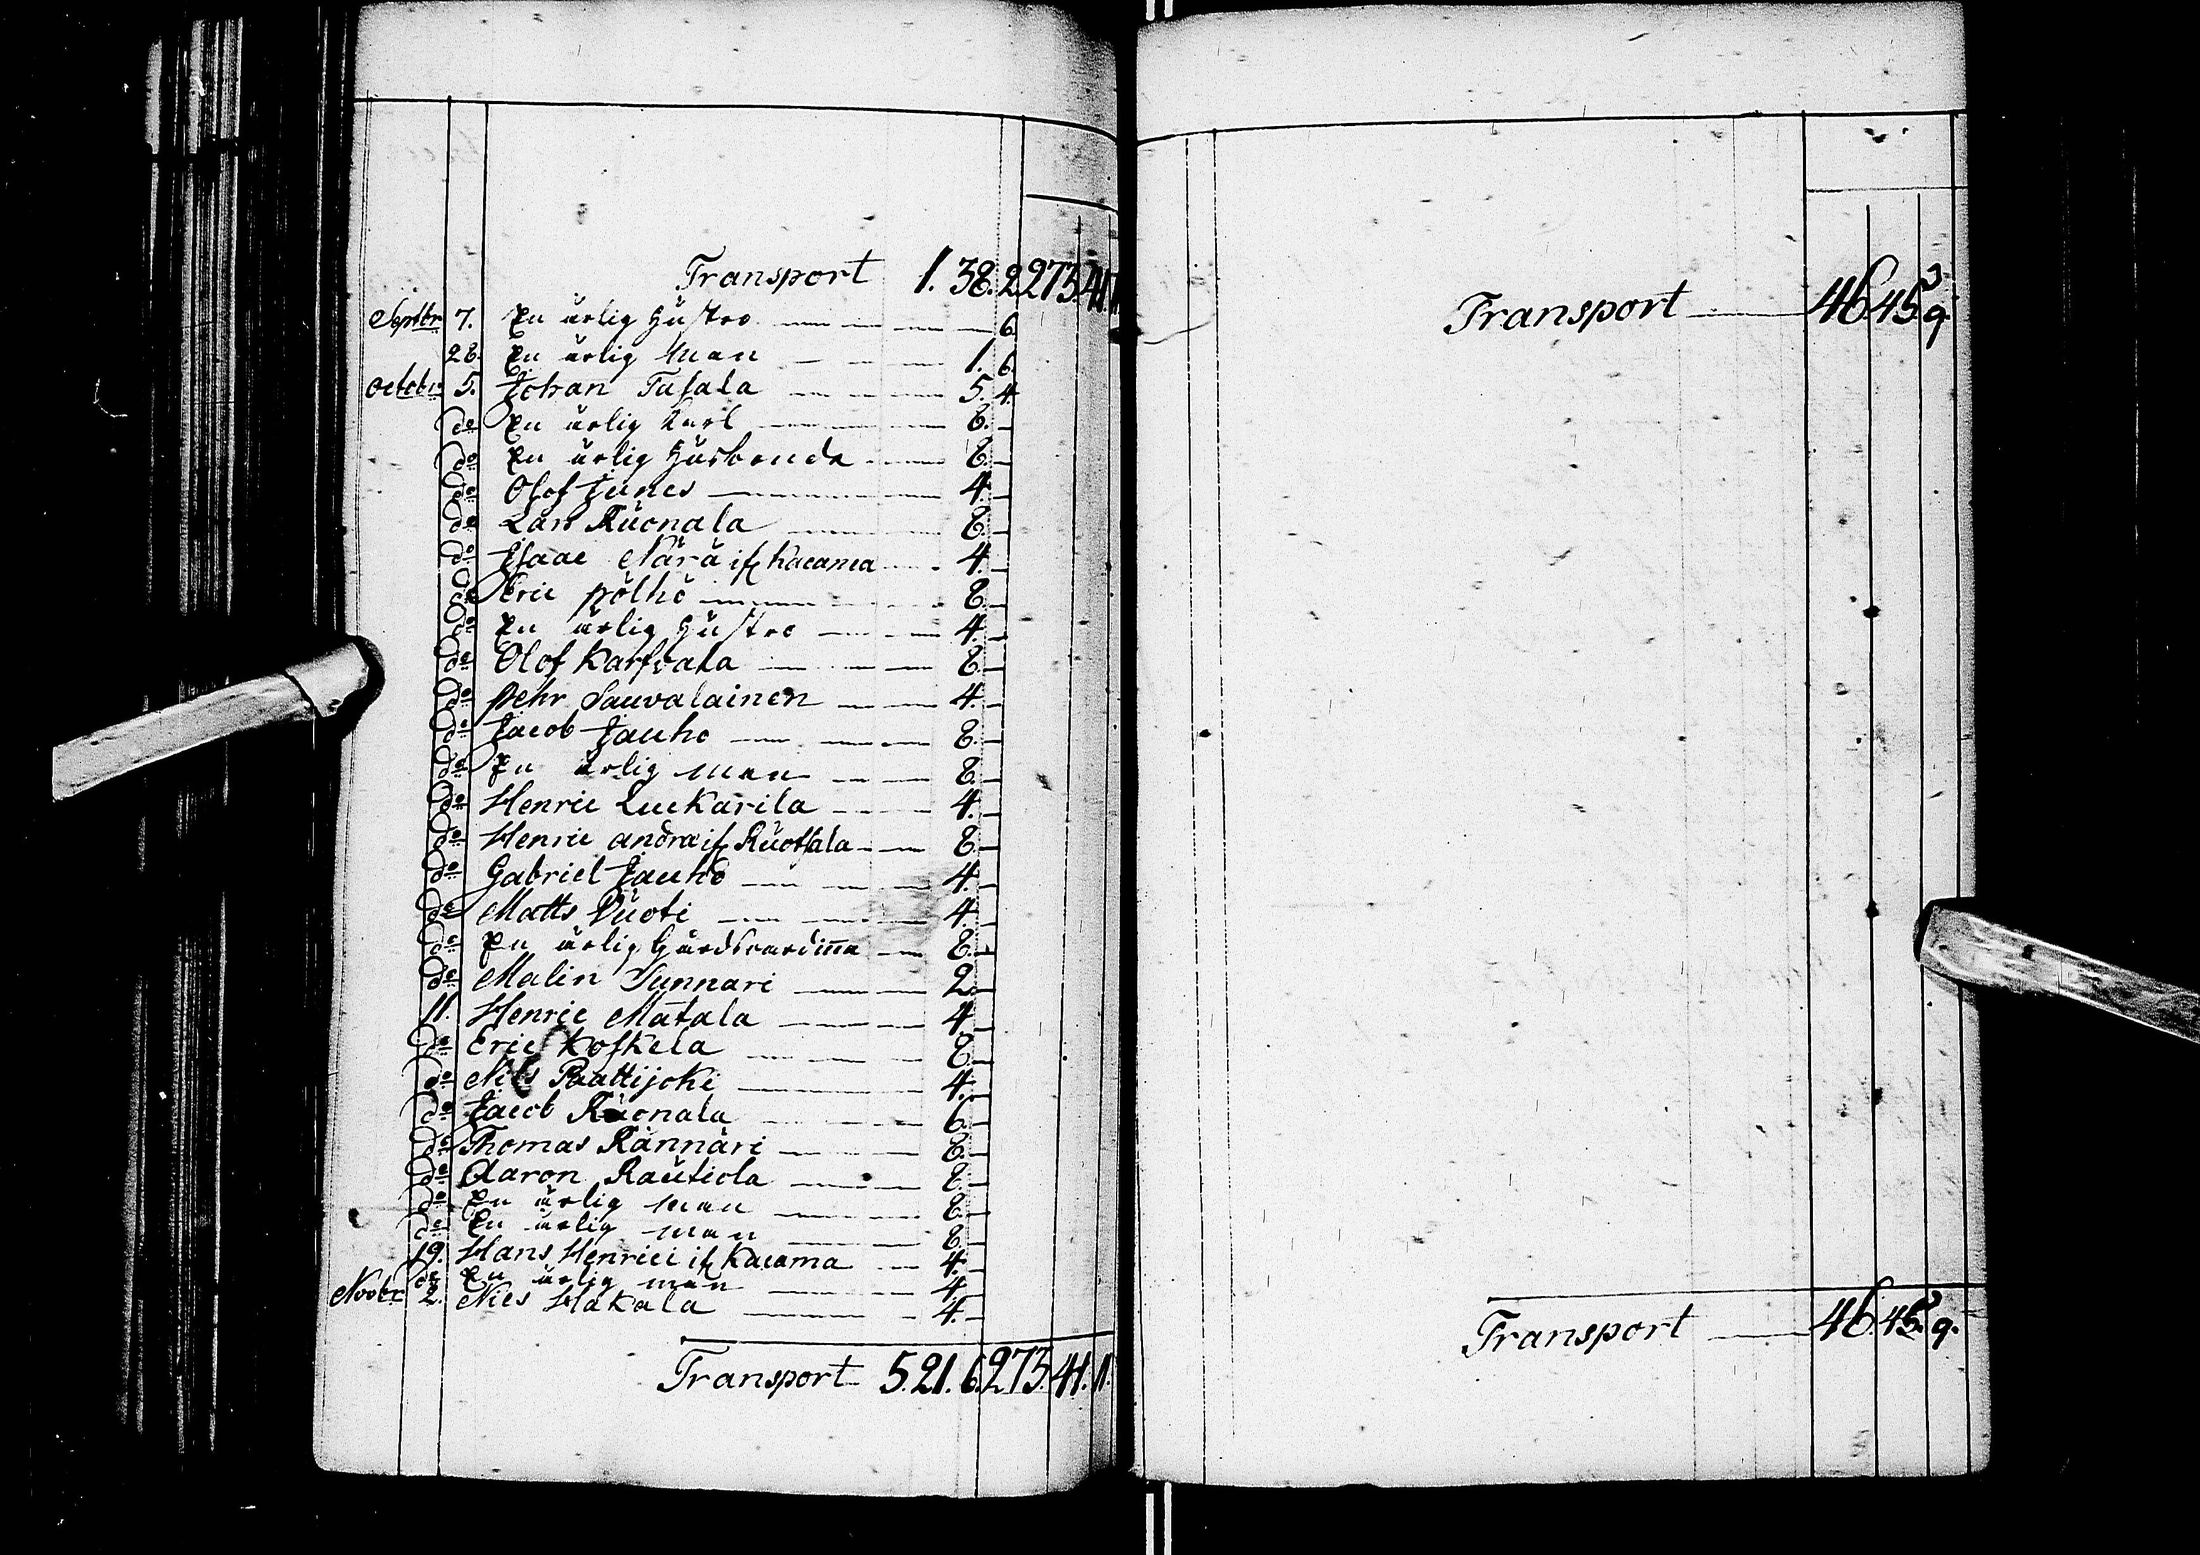 Transport 1. 38. 2 273. 41. 11
Septbr 7. En ärlig Hustro 6.
28. En ärlig Man 1. 6.
Octobr 5. Johan Tasala 5. 4.
do En ärlig Karl 8.
do En ärlig Husbonde 8.
do Olof Junes 4.
do Lars Ruonala 8.
do Isaac Närä if Kacama 4.
do Eric pölhö 8.
do En ärlig Hustro 4.
do Olof Karfvala 8.
do pehr Sauvalainen 4.
do Jacob Jauho 8.
do En ärlig man 8.
do Henric Luckarila 4.
do Henric andra if Ruotsala 8.
do Gabriel Jauho 4.
do Matts Vuoti 4.
do En ärlig Gårdsvardiña 8.
do Malin Sunnari 2.
11. Henric Matala 4.
do Eric Koskela 8.
do Nils Raattijoki 4.
do Jacob Ruonala 6.
do Thomas Rännäri 8.
do Aaron Rautiola 8.
do En ärlig man 8.
do En ärlig man 8.
19. Hans Henrici if Kacama 4.
do En ärlig man 4.
Novbr 2. Nils Hakala 4.
Transport 5. 21. 6. 273. 41. 11.
Transport 46. 45. 9.
Transport 46. 45. 9.